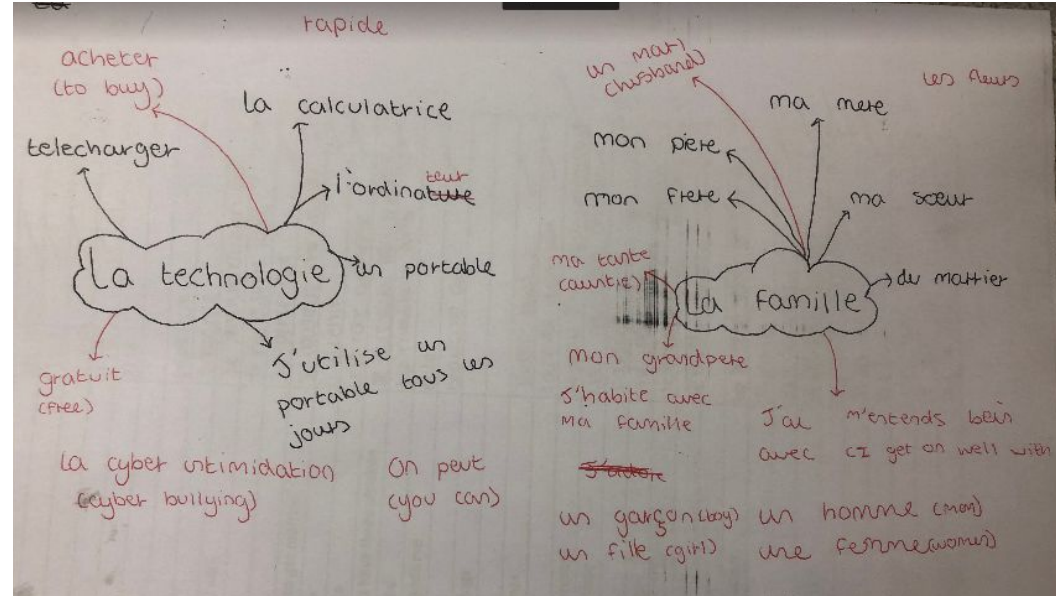 rapide
acheter
(to buy)
la calculatrice
telecharger
l'ordinateur
La technologie
un portable
J'utilise un
portable tous les
jours
gratuit
(free)
La cyber intimidation
(cyber bullying)
On peut
(you can)
un mari
(husband)
les fleurs
ma mere
mon piere
mon frere
ma soeur
ma tante
(auntie)
La famille
du marrier
mon grandpere
J'habite avec
ma famille
J'ai m'entends bein
avec (I get on well with
un garçon (boy) un homme (man)
un fille (girl) une femme (women)